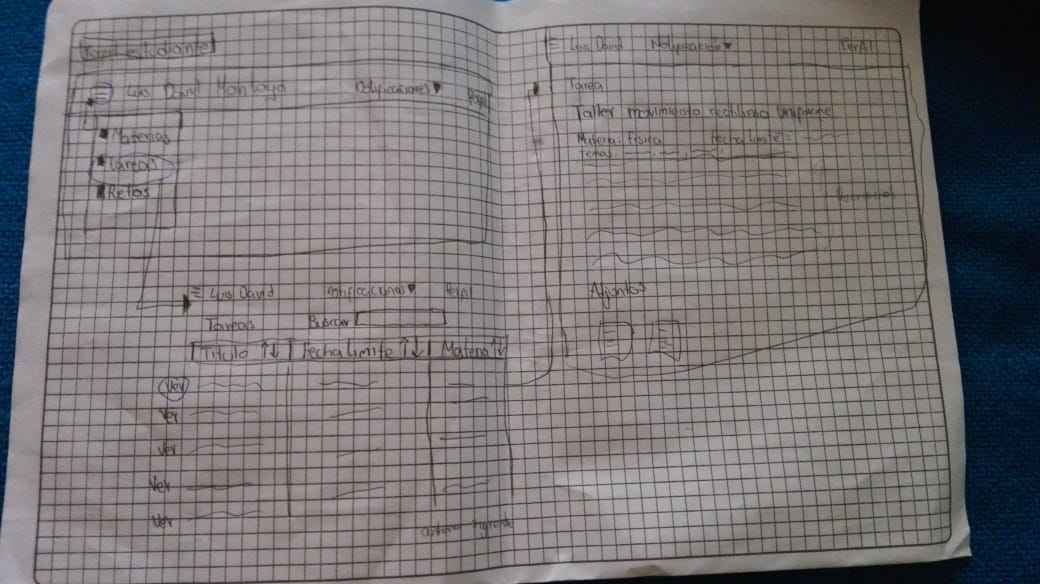 estudiante
Luis David Montoya Notificaciones Perfil
Materias
tareas
Retos
Luis David Notificaciones Perfil
Tareas Buscar
Titulo ↑↓ Fecha Limite ↑↓ Materia ↑↓
Ver
Ver
Ver
Ver
Ver
siguiente
Luis David Notificación Perfil
Tarea
Taller movimiento rectilineo Uniforme
Materia: física fecha limite:
Temas:
Adjuntos